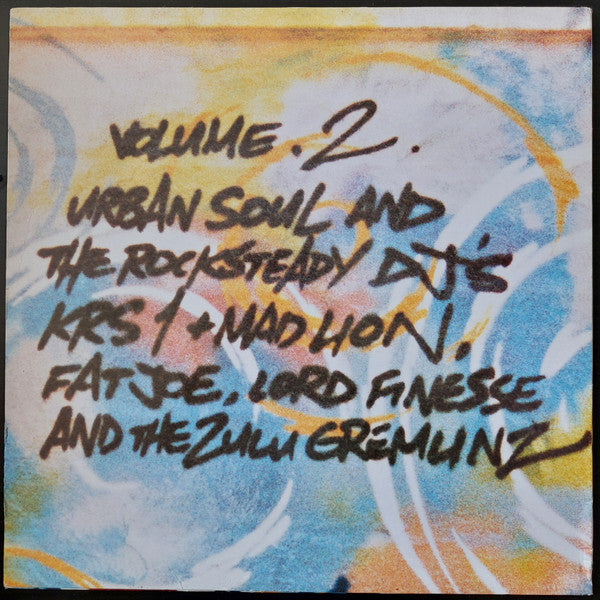 VOLUME.2.
URBAN SOUL AND
THE ROCKSTEADY DJ'S
KRS 1 + MAD LION,
FAT JOE, LORD FINESSE
AND THE ZULU GREMLINZ